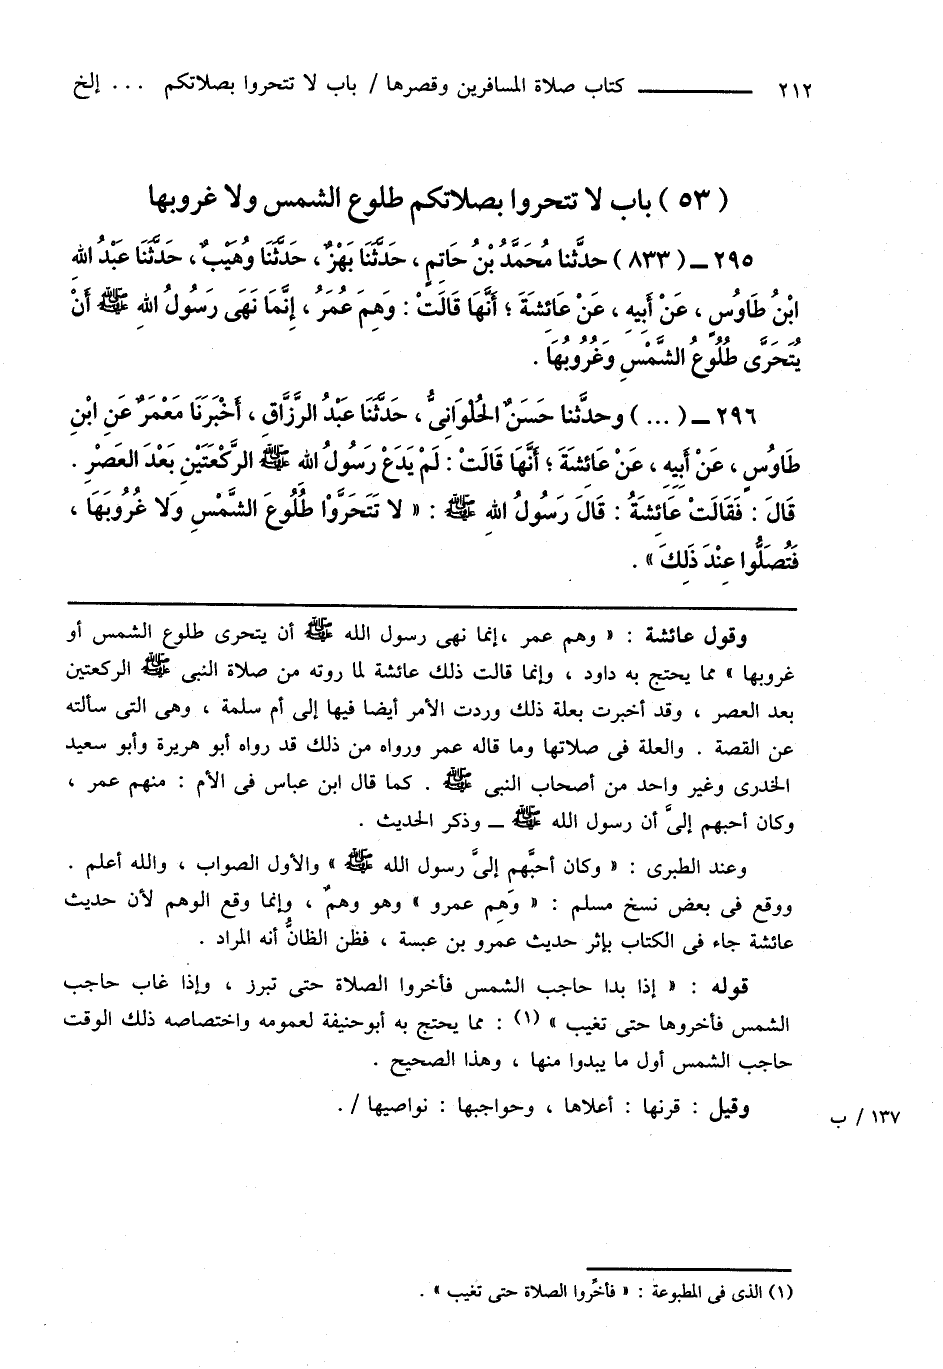 ٢١٢ ــــــــ كتاب صلاة المسافرين وقصرها / باب لا تتحروا بصلاتكم ... إلخ
( ٥٣ ) باب لا تتحروا بصلاتكم طلوع الشمس ولا غروبها
٢٩٥ ــ ( ٨٣٣ ) حدثَّنا مُحَمَّدُ بْنُ حَاتِمٍ ، حَدَّثَنَا بَهْزٌ ، حَدَّثَنَا وُهَيْبٌ ، حَدَّثَنَا عَبْدُ اللهِ
ابْنُ طَاوُسٍ ، عَنْ أَبِيهِ ، عَنْ عَائِشَةَ ؛ أَنَّهَا قَالَتْ : وَهِمَ عُمَرُ ، إِنَّمَا نَهَى رَسُولُ اللهِ ﷺ أَنْ
يُتَحَرَّى طُلُوعُ الشَّمْسِ وَغُرُوبُهَا .
٢٩٦ ــ ( ... ) وحدثَّنا حَسَنٌ الحُلْوَانِىُّ ، حَدَّثَنَا عَبْدُ الرَّزَّاقِ ، أَخْبَرَنَا مَعْمَرٌ عَنِ ابْنِ
طَاوُسٍ ، عَنْ أَبِيهِ ، عَنْ عَائِشَةَ ؛ أَنَّهَا قَالَتْ : لَمْ يَدَعْ رَسُولُ اللهِ ﷺ الرَّكْعَتَيْنِ بَعْدَ العَصْرِ .
قَالَ : فَقَالَتْ عَائِشَةُ : قَالَ رَسُولُ اللهِ ﷺ : « لا تَتَحَرَّوْا طُلُوعَ الشَّمْسِ وَلا غُرُوبَهَا ،
فَتُصَلُّوا عِنْدَ ذَلِكَ » .
وقول عائشة : « وهم عمر ،إنما نهى رسول الله ﷺ أن يتحرى طلوع الشمس أو
غروبها » مما يحتج به داود ، وإنما قالت ذلك عائشة لما روته من صلاة النبى ﷺ الركعتين
بعد العصر ، وقد أخبرت بعلة ذلك وردت الأمر أيضا فيها إلى أم سلمة ، وهى التى سألته
عن القصة . والعلة فى صلاتها وما قاله عمر ورواه من ذلك قد رواه أبو هريرة وأبو سعيد
الخدرى وغير واحد من أصحاب النبى ﷺ . كما قال ابن عباس فى الأم : منهم عمر ،
وكان أحبهم إلىَّ أن رسول الله ﷺ ــ وذكر الحديث .
وعند الطبرى : « وكان أحبَّهم إلىَّ رسول الله ﷺ » والأول الصواب ، والله أعلم .
ووقع فى بعض نسخ مسلم : « وَهِم عمرو » وهو وهمٌ ، وإنما وقع الوهم لأن حديث
عائشة جاء فى الكتاب بإثر حديث عمرو بن عبسة ، فظن الظانُّ أنه المراد .
قوله : « إذا بدا حاجب الشمس فأخروا الصلاة حتى تبرز ، وإذا غاب حاجب
الشمس فأخروها حتى تغيب » (١) : مما يحتج به أبوحنيفة لعمومه واختصاصه ذلك الوقت
حاجب الشمس أول ما يبدوا منها ، وهذا الصحيح .
وقيل : قرنها : أعلاها ، وحواجبها : نواصيها / .
١٣٧ / ب
(١) الذى فى المطبوعة : « فأخِّروا الصلاة حتى تغيب » .